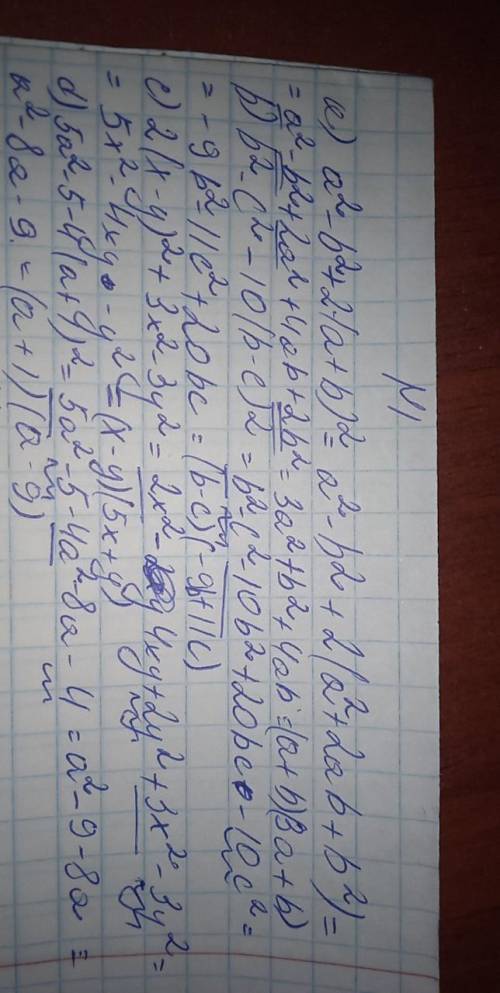 N1
a) a²-b²+2(a+b)² = a²-b²+2(a²+2ab+b²)=
= a²-b²+2a²+4ab+2b² = 3a²+b²+4ab = (a+b)(3a+b)
b) b²-c²-10(b-c)² = b²-c²-10b²+20bc-10c² =
= -9b²-11c²+20bc = (b-c)(-9b+11c)
c) 2(x-y)²+3x²-3y² = 2x²-4xy+2y²+3x²-3y² =
= 5x²-4xy-y² = (x-y)(5x+y)
d) 5a²-5-4(a+1)² = 5a²-5-4a²-8a-4 = a²-9-8a =
a²-8a-9 = (a+1)(a-9)